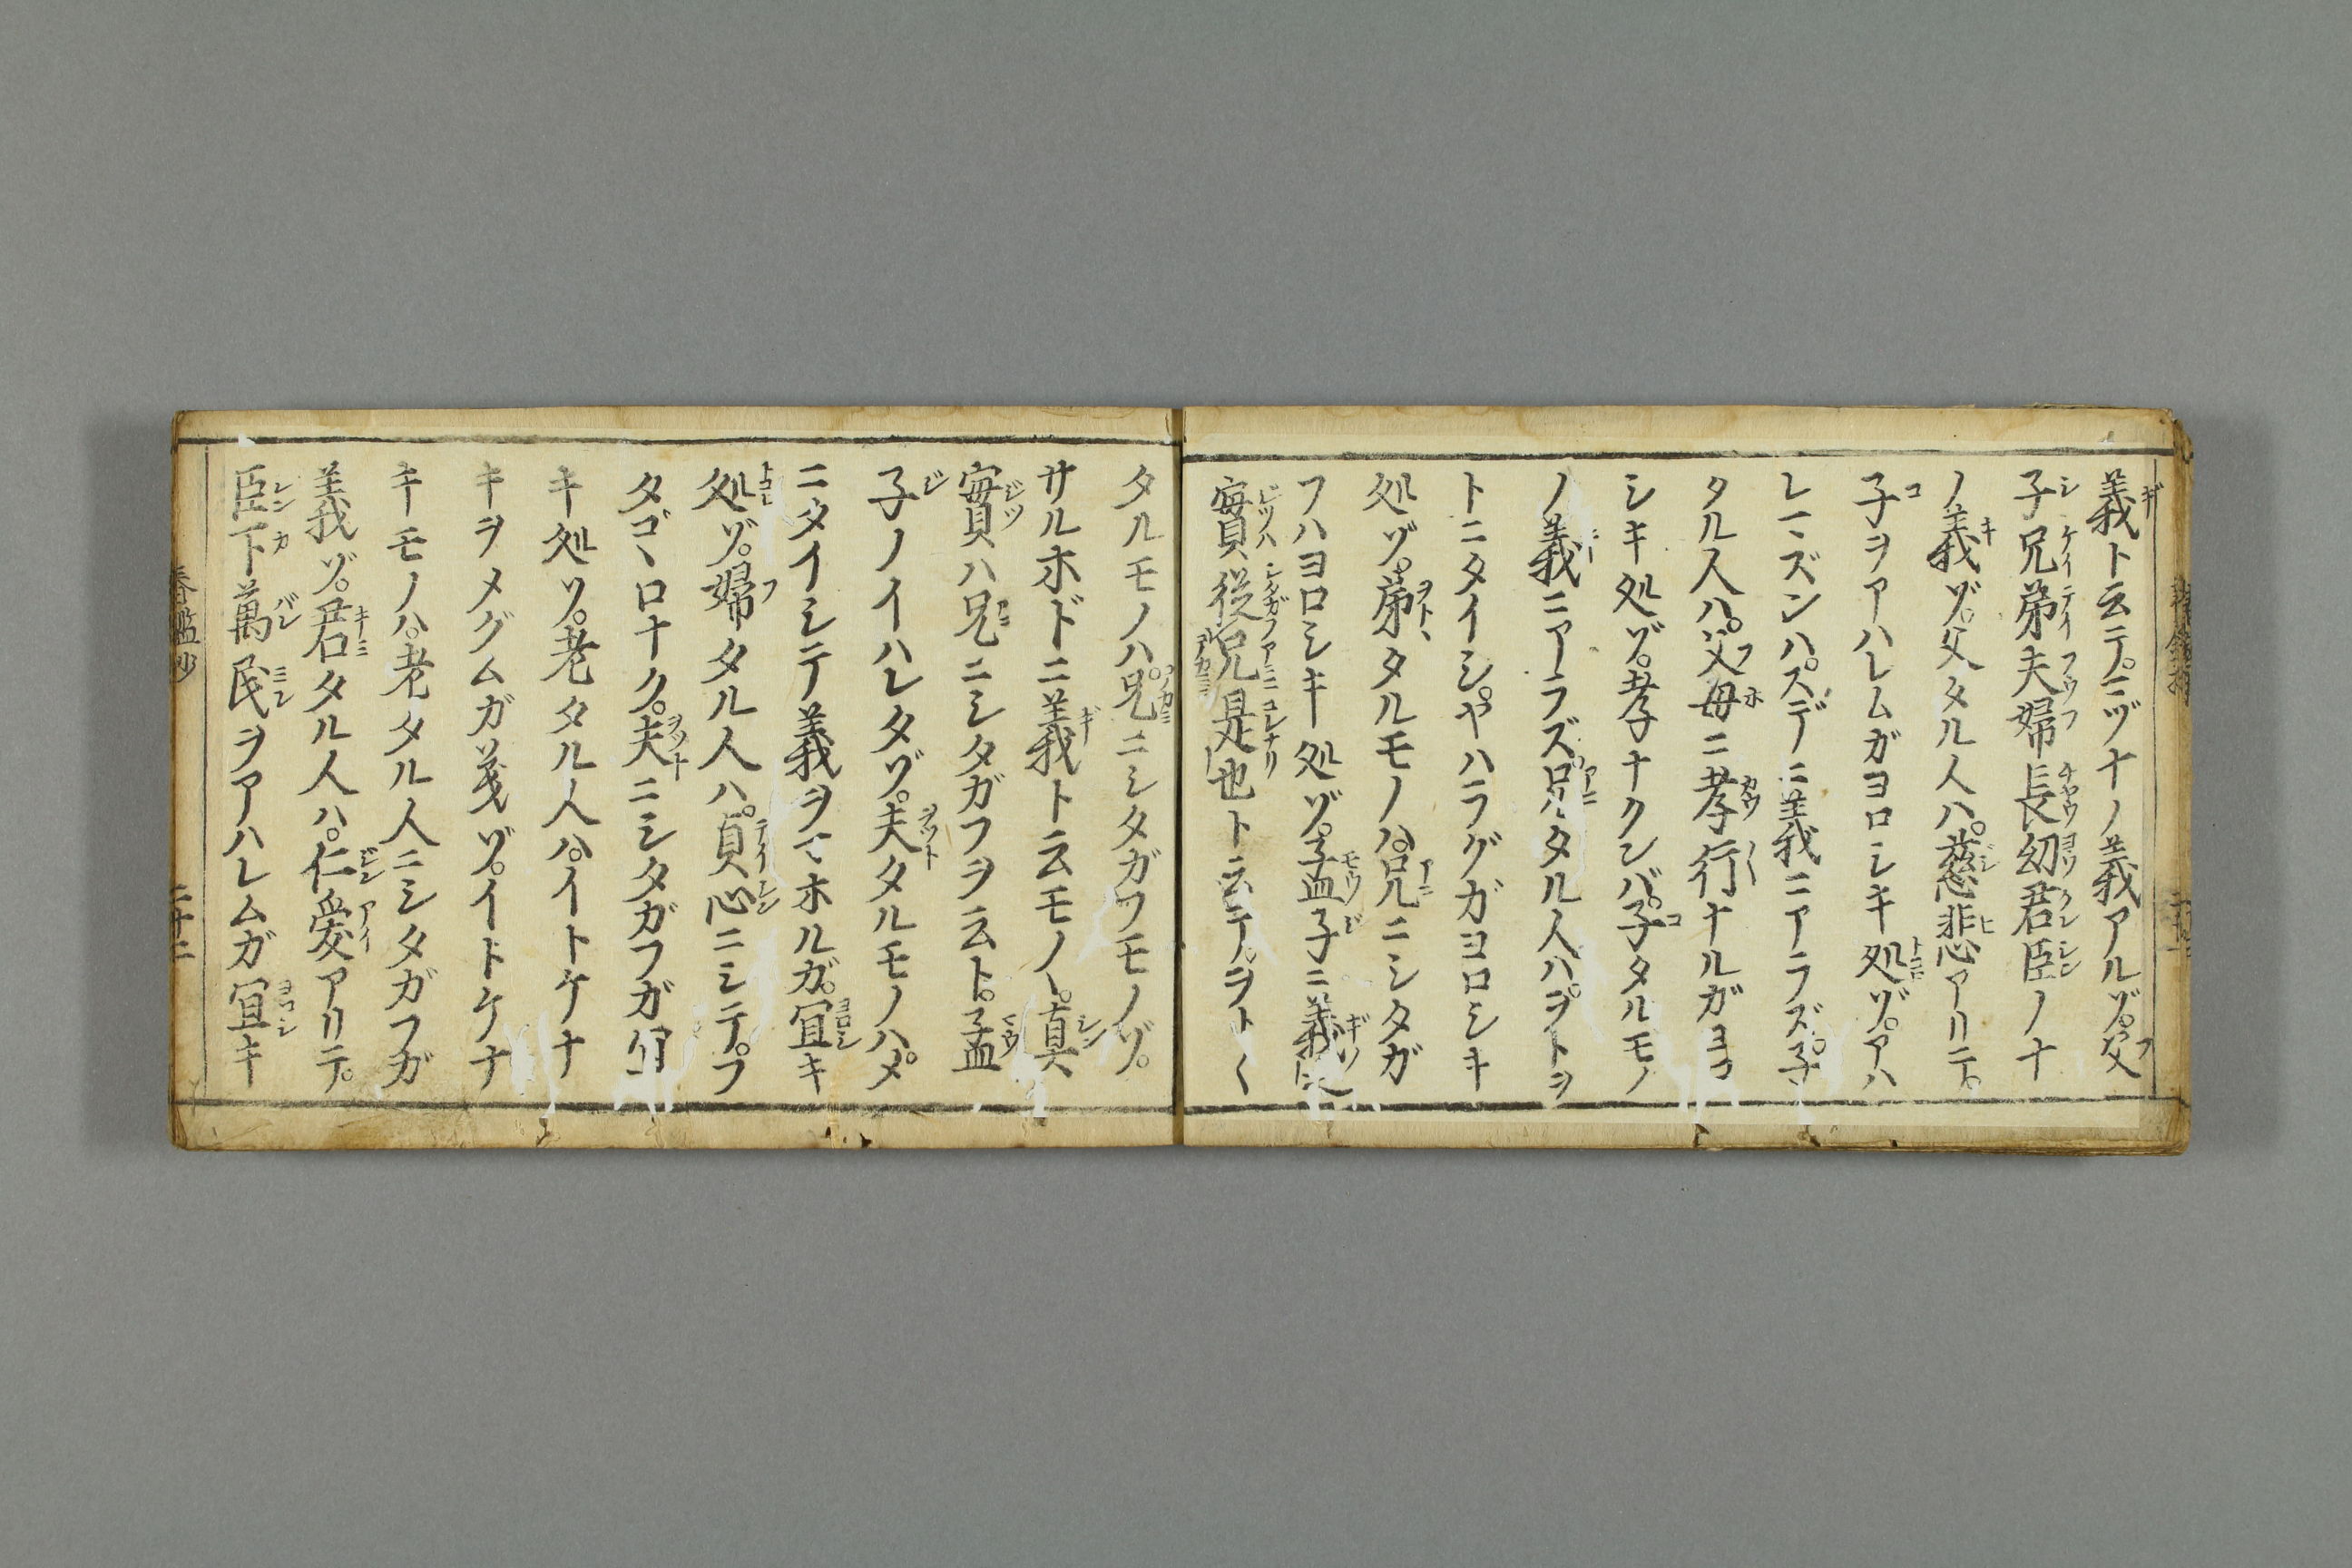 義ト云テ。ミヅナノ義アルゾ。父
子兄弟夫婦長幼君臣ノナ
ノ義ゾ。父タル人ハ。慈悲アリテ。
子ヲアハレムガヨロシキ処ゾ。アハ
レマズンハ。スデニ義ニアラズ。子
タル人ハ。父母ニ孝行ナルガヨロ
シキ処ゾ。孝ナクンバ。子タルモノ
ノ義ニアラズ。兄タル人ハ。ヲトヲ
トニタイシ。ヤハラグガヨロシキ
処ゾ。弟タルモノハ。兄ニシタガ
フハヨロシキ処ゾ。孟子ニ義之
實。従兄是也ト云テ。ヲトヽ
タルモノハ。兄ニシタガフモノゾ。
サルホドニ義ト云モノヽ。真
實ハ兄ニシタガフヲ云ト。孟
子ノイハレタゾ。夫タルモノハ。メ
ニタイシテ義ヲマホルガ。宜キ
処ゾ。婦タル人ハ。貞心ニシテ。フ
タゴヽロナク。夫ニシタガフガ宜
キ処ソ。老タル人ハ。イトケナ
キヲメグムガ義ゾ。イトケナ
キモノハ。老タル人ニシタガフガ
義ゾ。君タル人ハ。仁愛アリテ。
臣下萬民ヲアハレムガ宜キ
春鑑抄
二十二